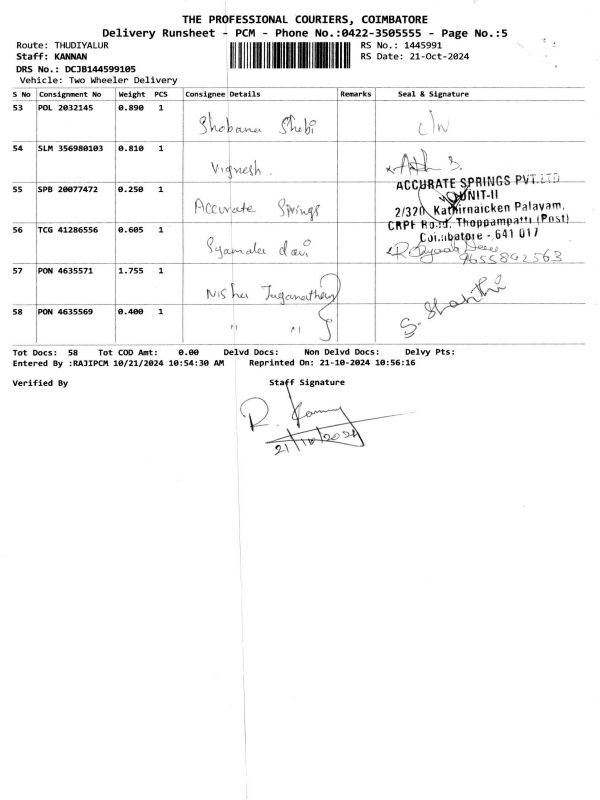 THE PROFESSIONAL COURIERS, COIMBATORE
Delivery Runsheet - PCM - Phone No.:0422-3505555 - Page No.:5
Route: THUDIYALUR RS No.: 1445991
Staff: KANNAN RS Date: 21-Oct-2024
DRS No.: DCJB144599105
Vehicle: Two Wheeler Delivery
S No Consignment No Weight PCS Consignee Details Remarks Seal & Signature
53 POL 2032145 0.890 1
Shobana Shebi
54 SLM 356980103 0.810 1
Vignesh.
55 SPB 20077472 0.250 1
Accurate Springs
ACCURATE SPRINGS PVT.LTD
UNIT-II
2/320, Kathirnaicken Palayam,
CRPF Road, Thoppampatti (Post)
Coimbatore - 641 017
56 TCG 41286556 0.605 1
Syamala davi
9655892563
57 PON 4635571 1.755 1
Nisha Jaganathan
58 PON 4635569 0.400 1
" "
S. Shanthi
Tot Docs: 58 Tot COD Amt: 0.00 Delvd Docs: Non Delvd Docs: Delvy Pts:
Entered By :RAJIPCM 10/21/2024 10:54:30 AM Reprinted On: 21-10-2024 10:56:16
Verified By Staff Signature
21/10/2024